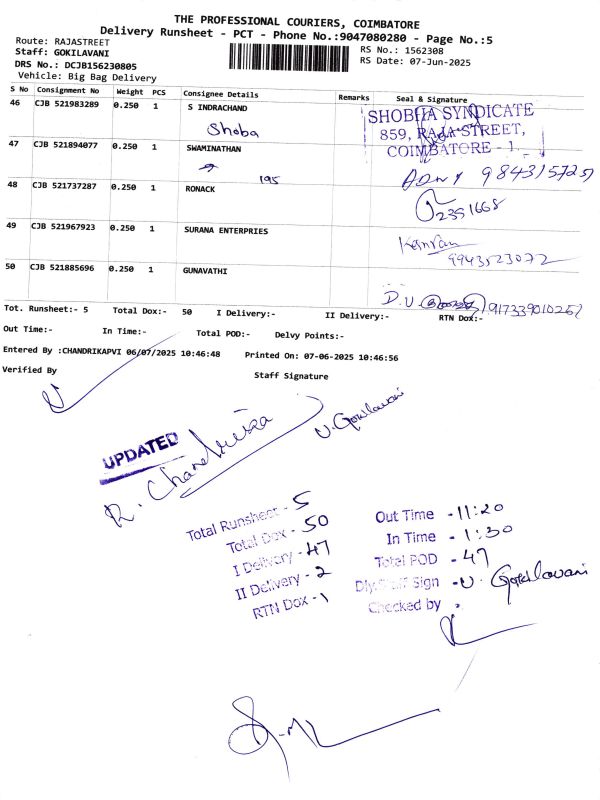 THE PROFESSIONAL COURIERS, COIMBATORE
Delivery Runsheet - PCT - Phone No.:9047080280 - Page No.:5
Route: RAJASTREET
Staff: GOKILAVANI
DRS No.: DCJB156230805
Vehicle: Big Bag Delivery
RS No.: 1562308
RS Date: 07-Jun-2025
S No Consignment No Weight PCS Consignee Details Remarks Seal & Signature
46 CJB 521983289 0.250 1 S INDRACHAND
Shoba
SHOBHA SYNDICATE
859, RAJA STREET,
COIMBATORE - 1.
47 CJB 521894077 0.250 1 SWAMINATHAN
9843157251
195
48 CJB 521737287 0.250 1 RONACK
2351668
49 CJB 521967923 0.250 1 SURANA ENTERPRIES
9943523072
50 CJB 521885696 0.250 1 GUNAVATHI
D.V 917339010252
Tot. Runsheet:- 5 Total Dox:- 50 I Delivery:- II Delivery:- RTN Dox:-
Out Time:- In Time:- Total POD:- Delvy Points:-
Entered By :CHANDRIKAPVI 06/07/2025 10:46:48 Printed On: 07-06-2025 10:46:56
Verified By Staff Signature
UPDATED
R. Chandrika
U. Gokilavani
Total Runsheet - 5
Total Dox - 50
I Delivery - 47
II Delivery - 2
RTN Dox - 1
Out Time - 11:20
In Time - 1:30
Total POD - 47
Dly.Staff Sign - U. Gokilavani
Checked by